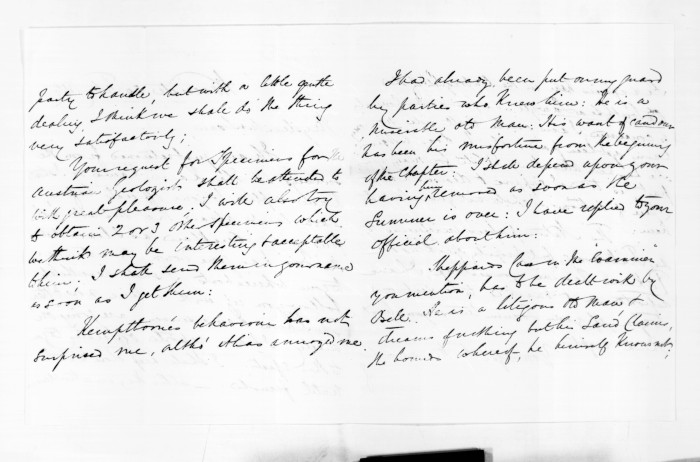 party to handle, but with a little gentle
dealing I think we shall do the thing
very satisfactorily;
Your request for Specimens for
Austrian Geologists shall be attended to
with great pleasure. I will also try
to obtain 2 or 3 other Specimens which
we think may be interesting & acceptable
them; I shall send them in your name
as soon as I get them:
Kempthorne's behaviour has not
surprised me, altho' it has annoyed me.
I had already been put on my guard
by parties who knew him: he is a
miserable old man. His want of candour
has been his misfortune from the beginning
of the Chapter: I shall depend upon your
having him removed as soon as the
Summer is over: I have replied to your
official about him:
Sheppards Case in the Examiner
you mention, has to be dealt with by
Bell. He is a litigious old man, &
dreams of nothing but his Land Claims,
the bounds whereof, he himself knows not;